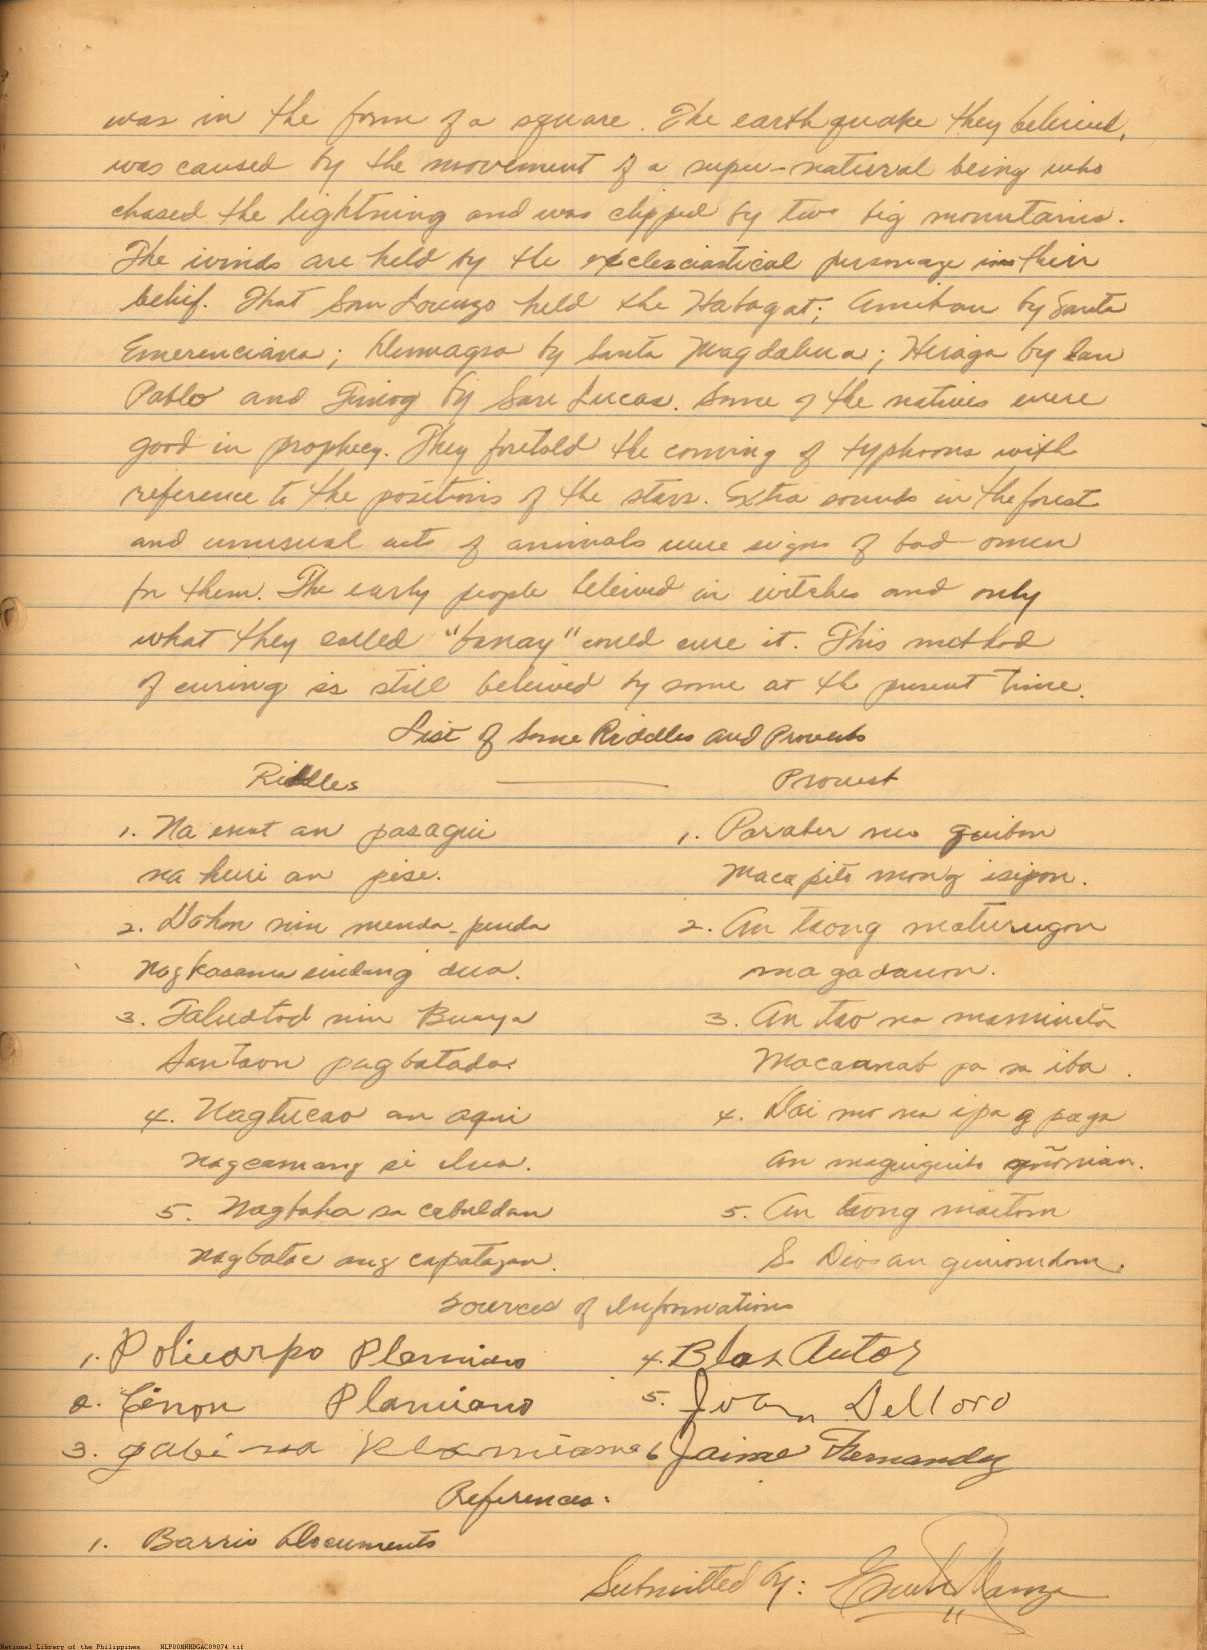 was in the form of a square. The earthquake they beleived,
was caused by the movement of a super-natural being who
chased the lightning and was clipped by two big mountains.
The winds are held by the exclesciastical personage in their
belief. That San Lorenzo held the Habagat; Amihan by Santa
Emerenciana; Dumagsa by Santa Magdalena; Hiraga by San
Pablo and Timog by San Lucas. Some of the natives were
good in prophecy. They foretold the coming of typhoons with
reference to the positions of the stars. Extra sounds in the forest
and unusual acts of animals were signs of bad omen
for them. The early people beleived in witches and only
what they called "banay" could cure it. This method
of curing is still beleived by some at the present time.
List of Some Riddles and Proverbs
Riddles
1. Na enot an pasagui
na huri an pise.
2. Dahon nin
Nagkasama dua.
3. Taludtod nin Buaya
Santaon pagbatada.
4. Nagtucao an aqui
nagcamang si
5. Nagbaha sa cabuldan
nagbatac ang capatagan.
1. guibon
Maca pito mong isipon.
2. An taong maturugon
magadauon.
3. An tao na
Macaanab pa sa iba.
4. Dai mo na ipag paga
An
5. An taong maitom
S. Dios an
Sources of Informations
1. Policarpo Plamiano
2. Cenon Plamiano
3. gabi na Plamiana
4. Blas Autor
5. Juan Delloro
6 Jaime Fernandez
References:
1. Barrio Documents
Submitted by:
National Library of the Philippines NLP00NHHDGAC09074.tif